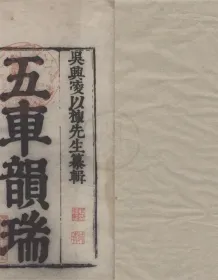 吳興凌以棟先生纂輯
五車韻瑞